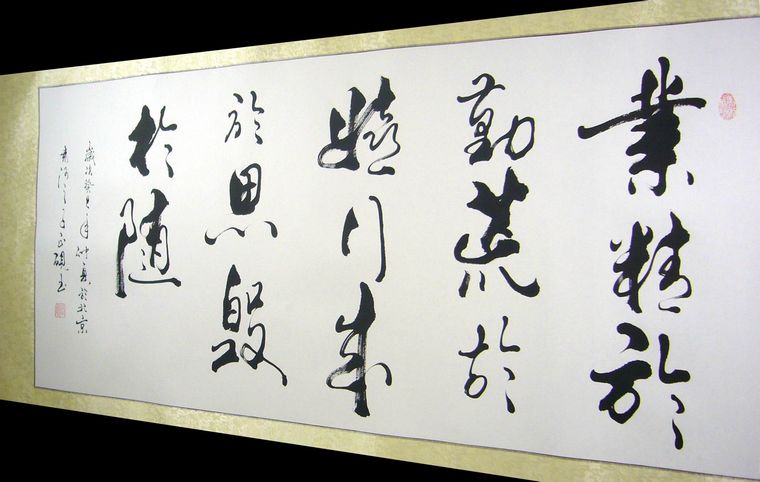 業精於
勤荒於
嬉行成
於思毀
於随
歲次癸巳年仲夏於北京